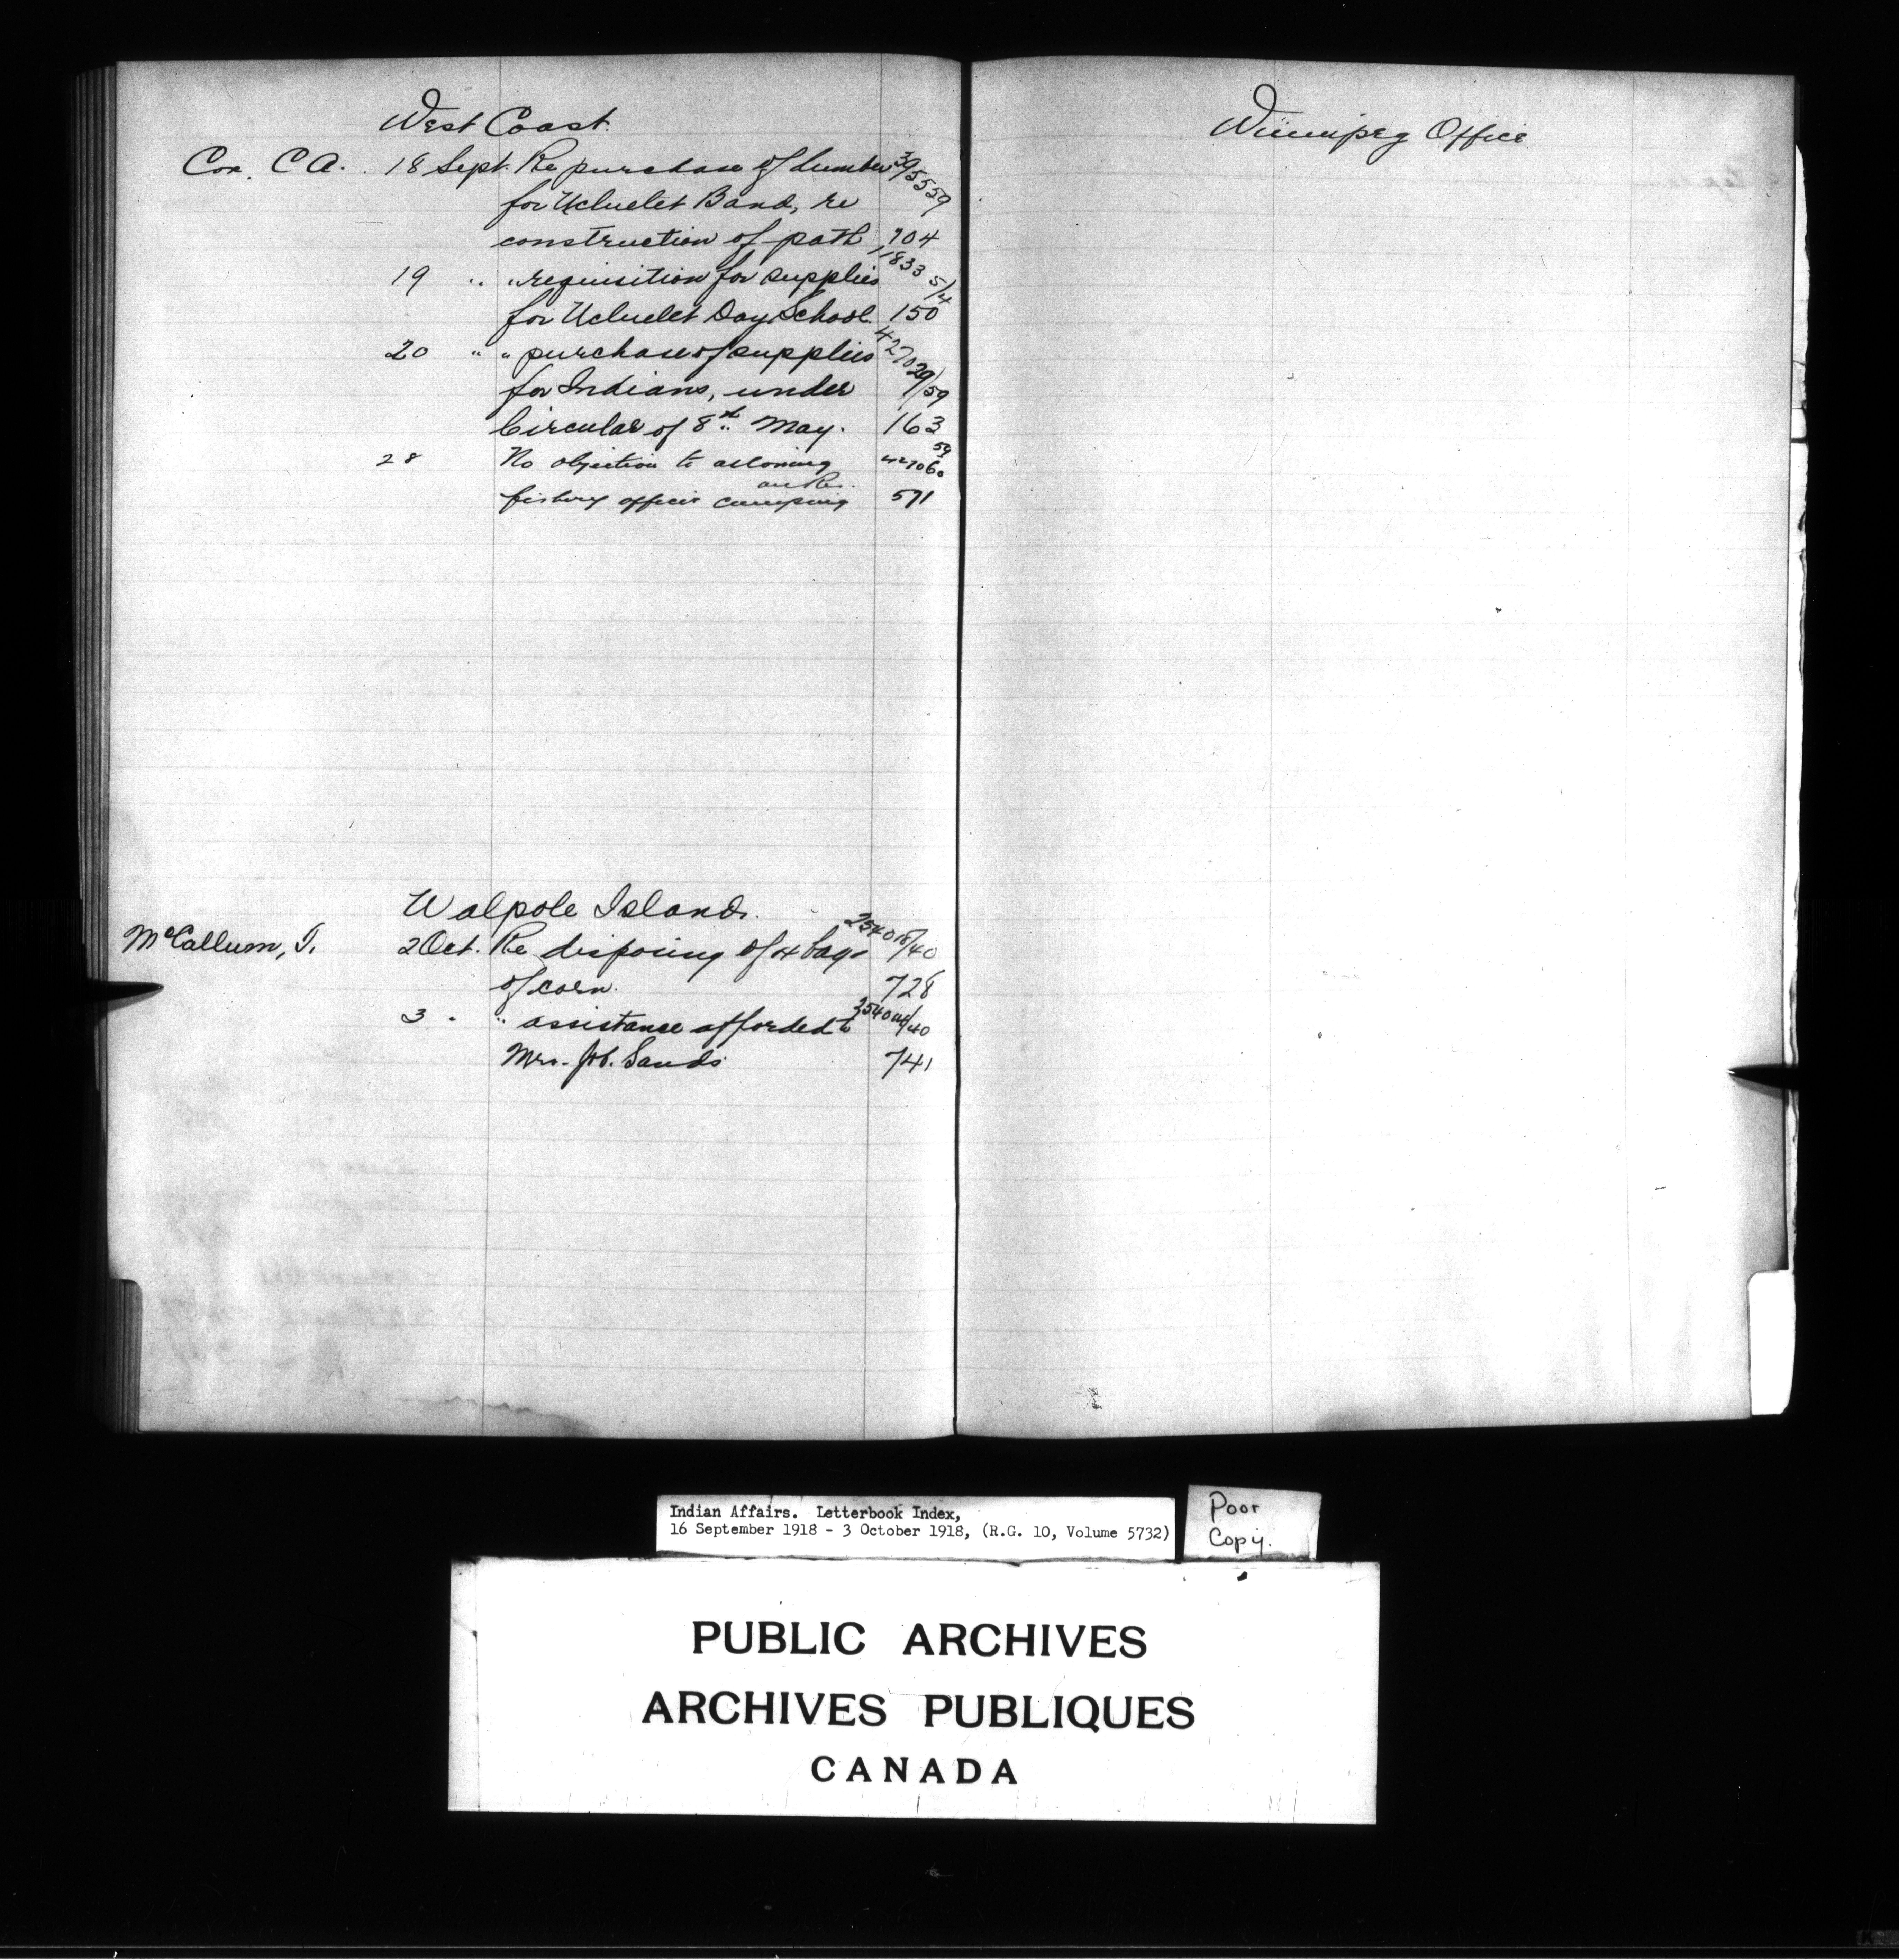 West Coast.
Cox, C A. 18 Sept. Re purchase of lumber 395559
for Ucluelet Band, re
construction of path 104
19 " " requisition for supplies 1833 5/4
for Ucluelet Day School. 150
20 " " purchase of supplies 427029/59
for Indians, under
Circular of 8th May. 163
28 No objection to allowing 427060 59
on Res.
fishery officer camping 571
Walpole Island.
McCallum, T. 2 Oct. Re disposing of 4 bags 254018/40
of corn. 728
3 " " assistance afforded to 254044/40
Mrs. Sands 741
Winnipeg Office
Indian Affairs. Letterbook Index,
16 September 1918 - 3 October 1918, (R.G. 10, Volume 5732)
Poor
Copy.
PUBLIC ARCHIVES
ARCHIVES PUBLIQUES
CANADA